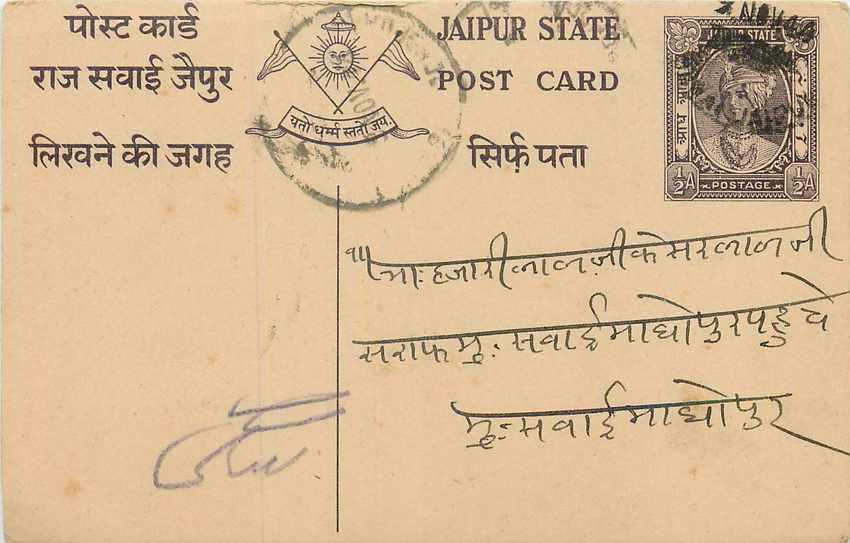 पोस्ट कार्ड
राज सवाई जैपुर
लिखने की जगह
यतो धर्म्म स्ततो जय.
JAIPUR STATE
POST CARD
सिर्फ़ पता
JAIPUR STATE
½A POSTAGE ½A
भाः हजारीलालजी केसरलालजी
सराफ मुः सवाई माधोपुर पहुचे
मुः सवाई माधोपुर